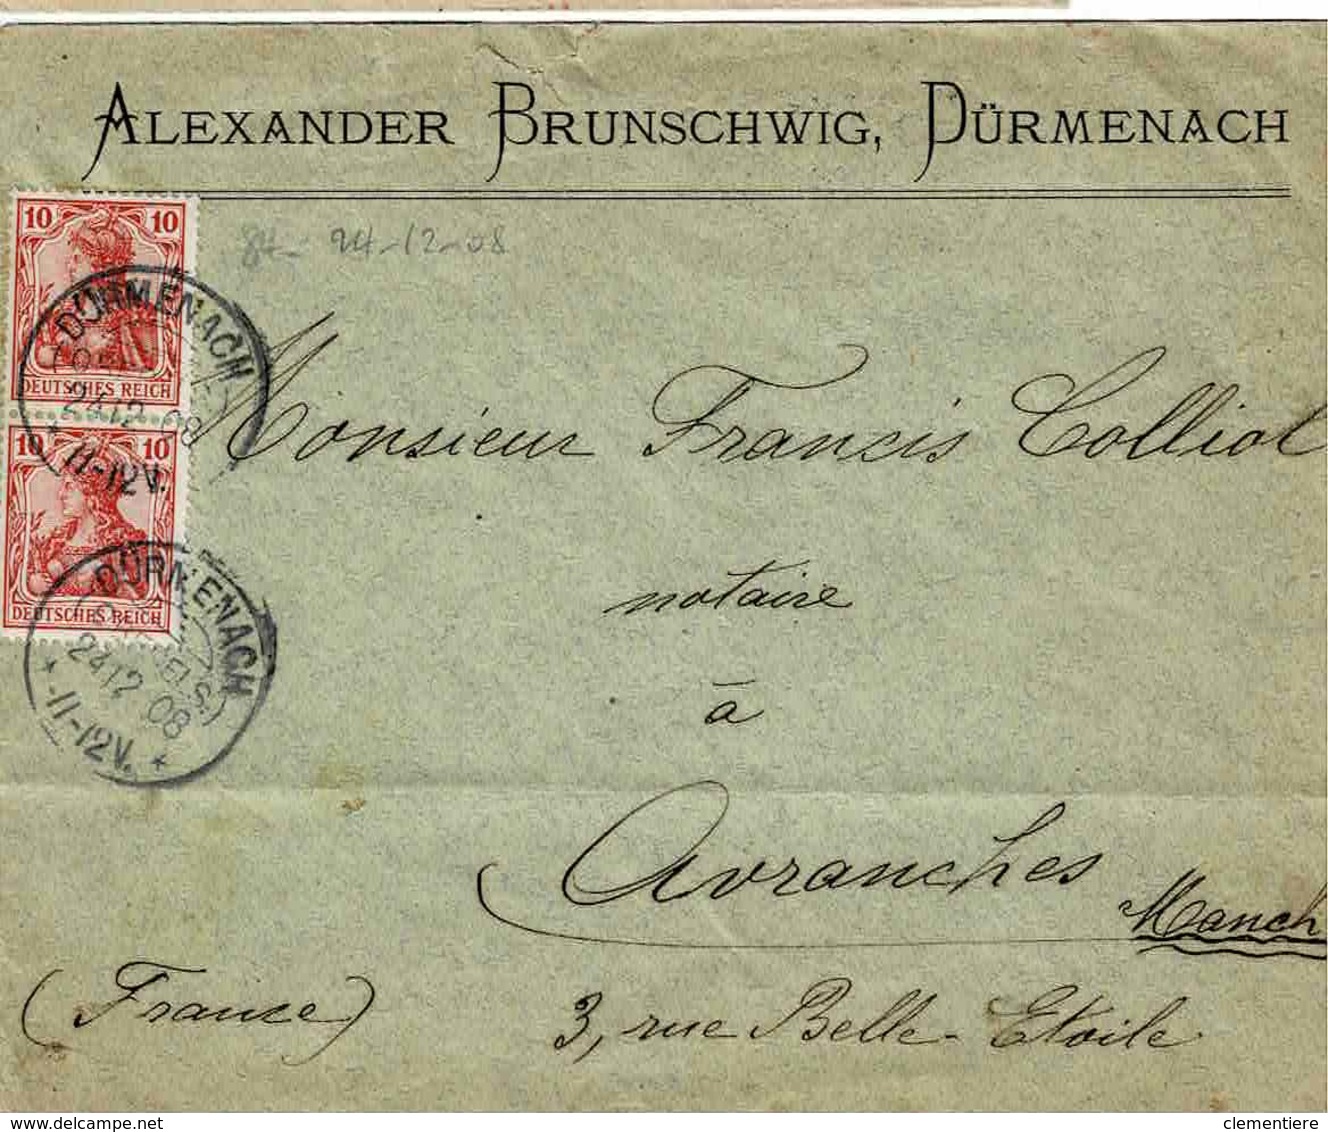 ALEXANDER BRUNSCHWIG, DÜRMENACH
10 10
DEUTSCHES REICH
10 10
DEUTSCHES REICH
DÜRMENACH
24 12 08
11-12V.
DÜRMENACH
24 12 08
* 11-12V. *
24-12-08
Monsieur Francis Colliol
notaire
à
Avranches
Manch
(France)
3, rue Belle-Etoile
clementiere